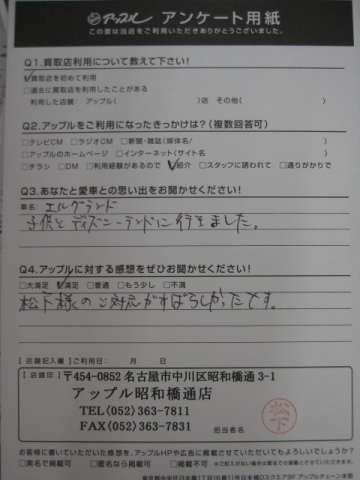 アップル アンケート用紙
この度は当店をご利用いただきありがとうございました。
Q1.買取店利用について教えて下さい!
☑買取店を初めて利用
□過去に買取店を利用したことがある
利用した店舗: アップル( )店 その他( )
Q2.アップルをご利用になったきっかけは?(複数回答可)
□テレビCM □ラジオCM □新聞・雑誌(媒体名/ )
□アップルのホームページ □インターネット(サイト名 )
□チラシ □DM □利用経験があるので ☑紹介 □スタッフに誘われて □通りがかりで
Q3.あなたと愛車との思い出をお聞かせください!
車名: エルグランド
子供とディズニーランドに行きました。
Q4.アップルに対する感想をぜひお聞かせください!
□大満足 ☑満足 □普通 □もう少し □不満
松下様のご対応がすばらしかったです。
[店舗記入欄] ご利用日: 月 日
[店舗印] 〒454-0852 名古屋市中川区昭和橋通 3-1
アップル昭和橋通店
TEL(052)363-7811
FAX(052)363-7831
担当者名
松下
お客様に書いていただいた感想を、アップルHPや広告に掲載させていただいてもよろしいでしょうか?
□実名で掲載可 □匿名なら掲載可 □掲載不可